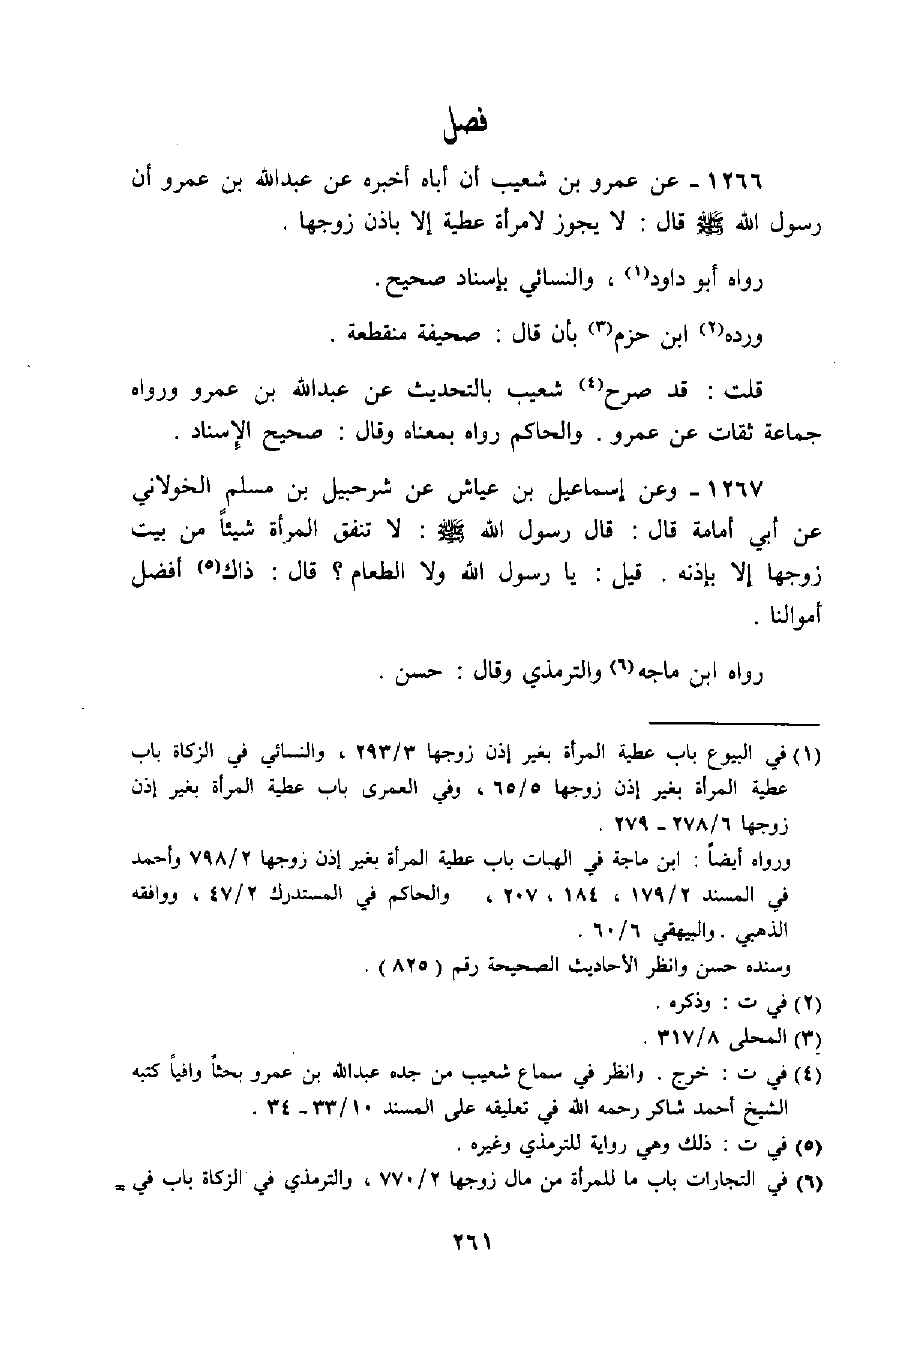 فصل
١٢٦٦ - عن عمرو بن شعيب أن أباه أخبره عن عبدالله بن عمرو أن
رسول الله ﷺ قال : لا يجوز لامرأة عطية إلا باذن زوجها .
رواه أبو داود(١) ، والنسائي بإسناد صحيح .
ورده(٢) ابن حزم(٣) بأن قال : صحيفة منقطعة .
قلت : قد صرح(٤) شعيب بالتحديث عن عبدالله بن عمرو ورواه
جماعة ثقات عن عمرو . والحاكم رواه بمعناه وقال : صحيح الإسناد .
١٢٦٧ - وعن إسماعيل بن عياش عن شرحبيل بن مسلم الخولاني
عن أبي أمامة قال : قال رسول الله ﷺ : لا تنفق المرأة شيئاً من بيت
زوجها إلا بإذنه . قيل : يا رسول الله ولا الطعام ؟ قال : ذاك(٥) أفضل
أموالنا .
رواه ابن ماجه(٦) والترمذي وقال : حسن .
(١) في البيوع باب عطية المرأة بغير إذن زوجها ٢٩٣/٣ ، والنسائي في الزكاة باب
عطية المرأة بغير إذن زوجها ٦٥/٥ ، وفي العمرى باب عطية المرأة بغير إذن
زوجها ٢٧٨/٦ - ٢٧٩ .
ورواه أيضاً : ابن ماجة في الهبات باب عطية المرأة بغير إذن زوجها ٧٩٨/٢ وأحمد
في المسند ١٧٩/٢ ، ١٨٤ ، ٢٠٧ ، والحاكم في المستدرك ٤٧/٢ ، ووافقه
الذهبي . والبيهقي ٦٠/٦ .
وسنده حسن وانظر الأحاديث الصحيحة رقم ( ٨٢٥ ) .
(٢) في ت : وذكره .
(٣) المحلى ٣١٧/٨ .
(٤) في ت : خرج . وانظر في سماع شعيب من جده عبدالله بن عمرو بحثاً وافياً كتبه
الشيخ أحمد شاكر رحمه الله في تعليقه على المسند ٣٣/١٠ - ٣٤ .
(٥) في ت : ذلك وهي رواية للترمذي وغيره .
(٦) في التجارات باب ما للمرأة من مال زوجها ٧٧٠/٢ ، والترمذي في الزكاة باب في =
٢٦١